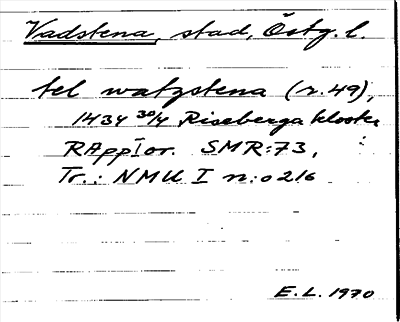 Vadstena, stad, Östg. l.
tel watzstena (r. 49),
1434 30/4 Riseberga kloster
RAppIor. SMR:73,
Tr.: NMU I n:o 216
E.L. 1970